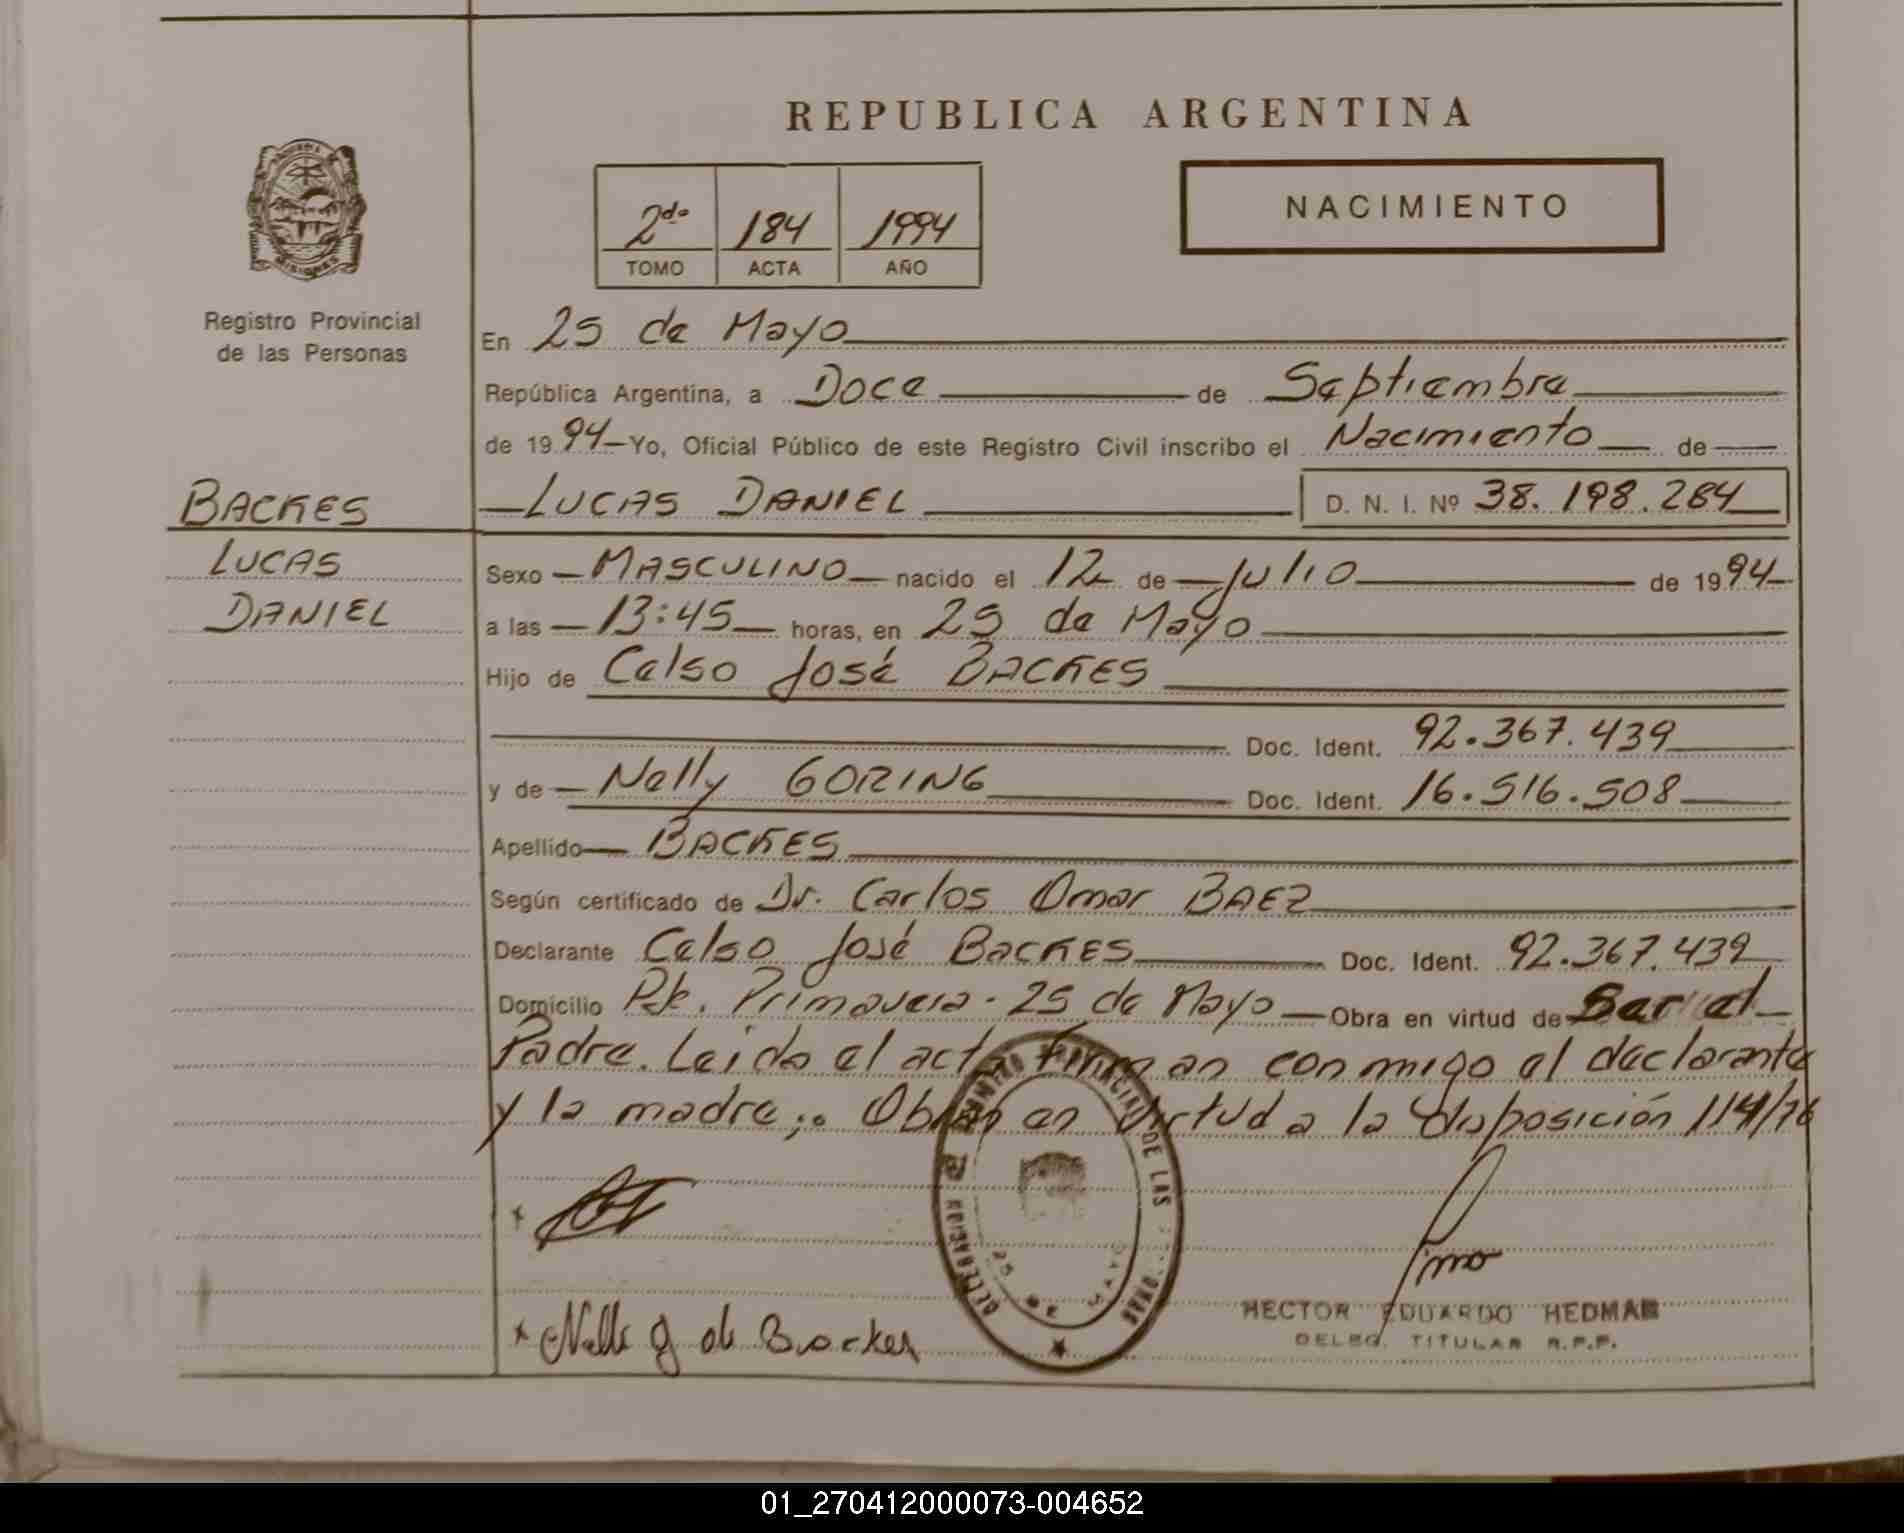 REPUBLICA ARGENTINA
2do 184 1994
TOMO ACTA AÑO
NACIMIENTO
MISIONES
Registro Provincial
de las Personas
En 25 de Mayo
República Argentina, a Doce de Septiembre
de 1994 Yo, Oficial Público de este Registro Civil inscribo el Nacimiento de
BACKES
LUCAS DANIEL D. N. I. Nº 38.198.284
LUCAS
DANIEL
Sexo MASCULINO nacido el 12 de julio de 1994
a las 13:45 horas, en 25 de Mayo
Hijo de Celso José BACKES
Doc. Ident. 92.367.439
y de Nelly GORING Doc. Ident. 16.516.508
Apellido BACKES
Según certificado de Dr. Carlos Omar BAEZ
Declarante Celso José BACKES Doc. Ident. 92.367.439
Domicilio Pje. Primavera - 25 de Mayo Obra en virtud de Ser el
Padre. Leída el acta firman conmigo el declarante
y la madre;. Obran en virtud a la disposición 114/76
REGISTRO PROVINCIAL DE LAS PERSONAS
DELEGACION
25 DE MAYO
Nelli G de Backes
HECTOR EDUARDO HEDMAN
DELEG. TITULAR R.P.P.
01_270412000073-004652